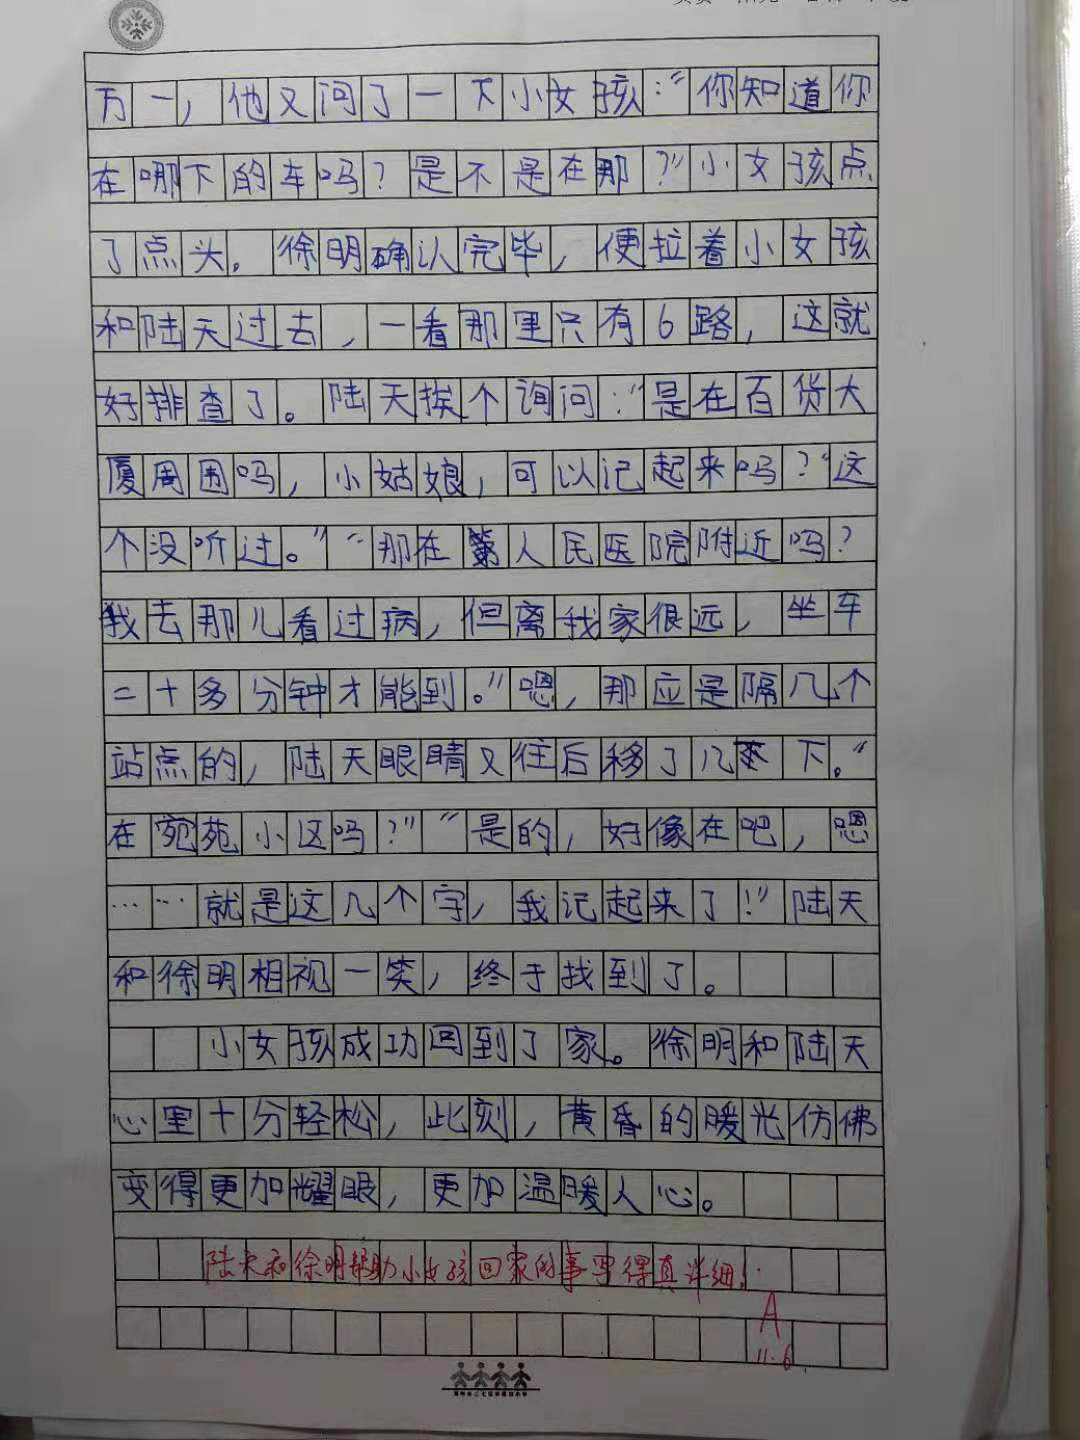 万一，他又问了一下小女孩：“你知道你
在哪下的车吗？是不是在那？”小女孩点
了点头。徐明确认完毕，便拉着小女孩
和陆天过去，一看那里只有6路，这就
好排查了。陆天挨个询问：“是在百货大
厦周围吗，小姑娘，可以记起来吗？“这
个没听过。”“那在第人民医院附近吗？
我去那儿看过病，但离我家很远，坐车
二十多分钟才能到。”嗯，那应是隔几个
站点的，陆天眼睛又往后移了几下。“
在宛苑小区吗？”“是的，好像在吧，嗯
……就是这几个字，我记起来了！”陆天
和徐明相视一笑，终于找到了。
小女孩成功回到了家。徐明和陆天
心里十分轻松，此刻，黄昏的暖光仿佛
变得更加耀眼，更加温暖人心。
陆天和徐明帮助小女孩回家的事写得真详细！
A
11.6